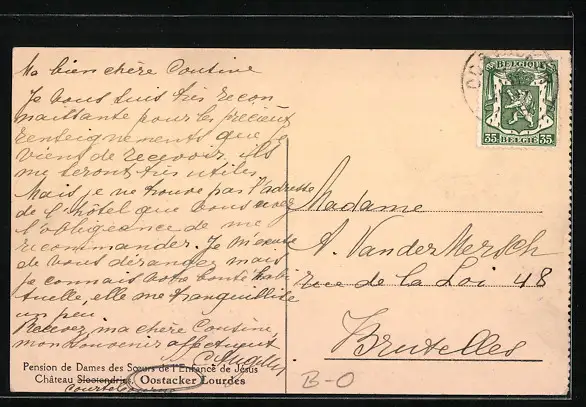 Ma bien chère Cousine
Je vous suis très recon
naissante pour les précieux
renseignements que je
viens de recevoir, ils
me seront très utiles
Mais je ne trouve pas l'adresse
de l'hôtel que vous avez
l'obligeance de me
recommander. Je m'excuse
de vous déranger mais
je connais votre bonté habi
tuelle, elle me tranquillise
un peu
Recevez, ma chère Cousine,
mon souvenir affectueux
Pension de Dames des Sœurs de l'Enfance de Jésus
Château Slootendries, Oostacker Lourdes
BELGIQUE
35 35
BELGIË
Madame
A. VanderMersch
rue de la Loi 48
Bruxelles
B-O